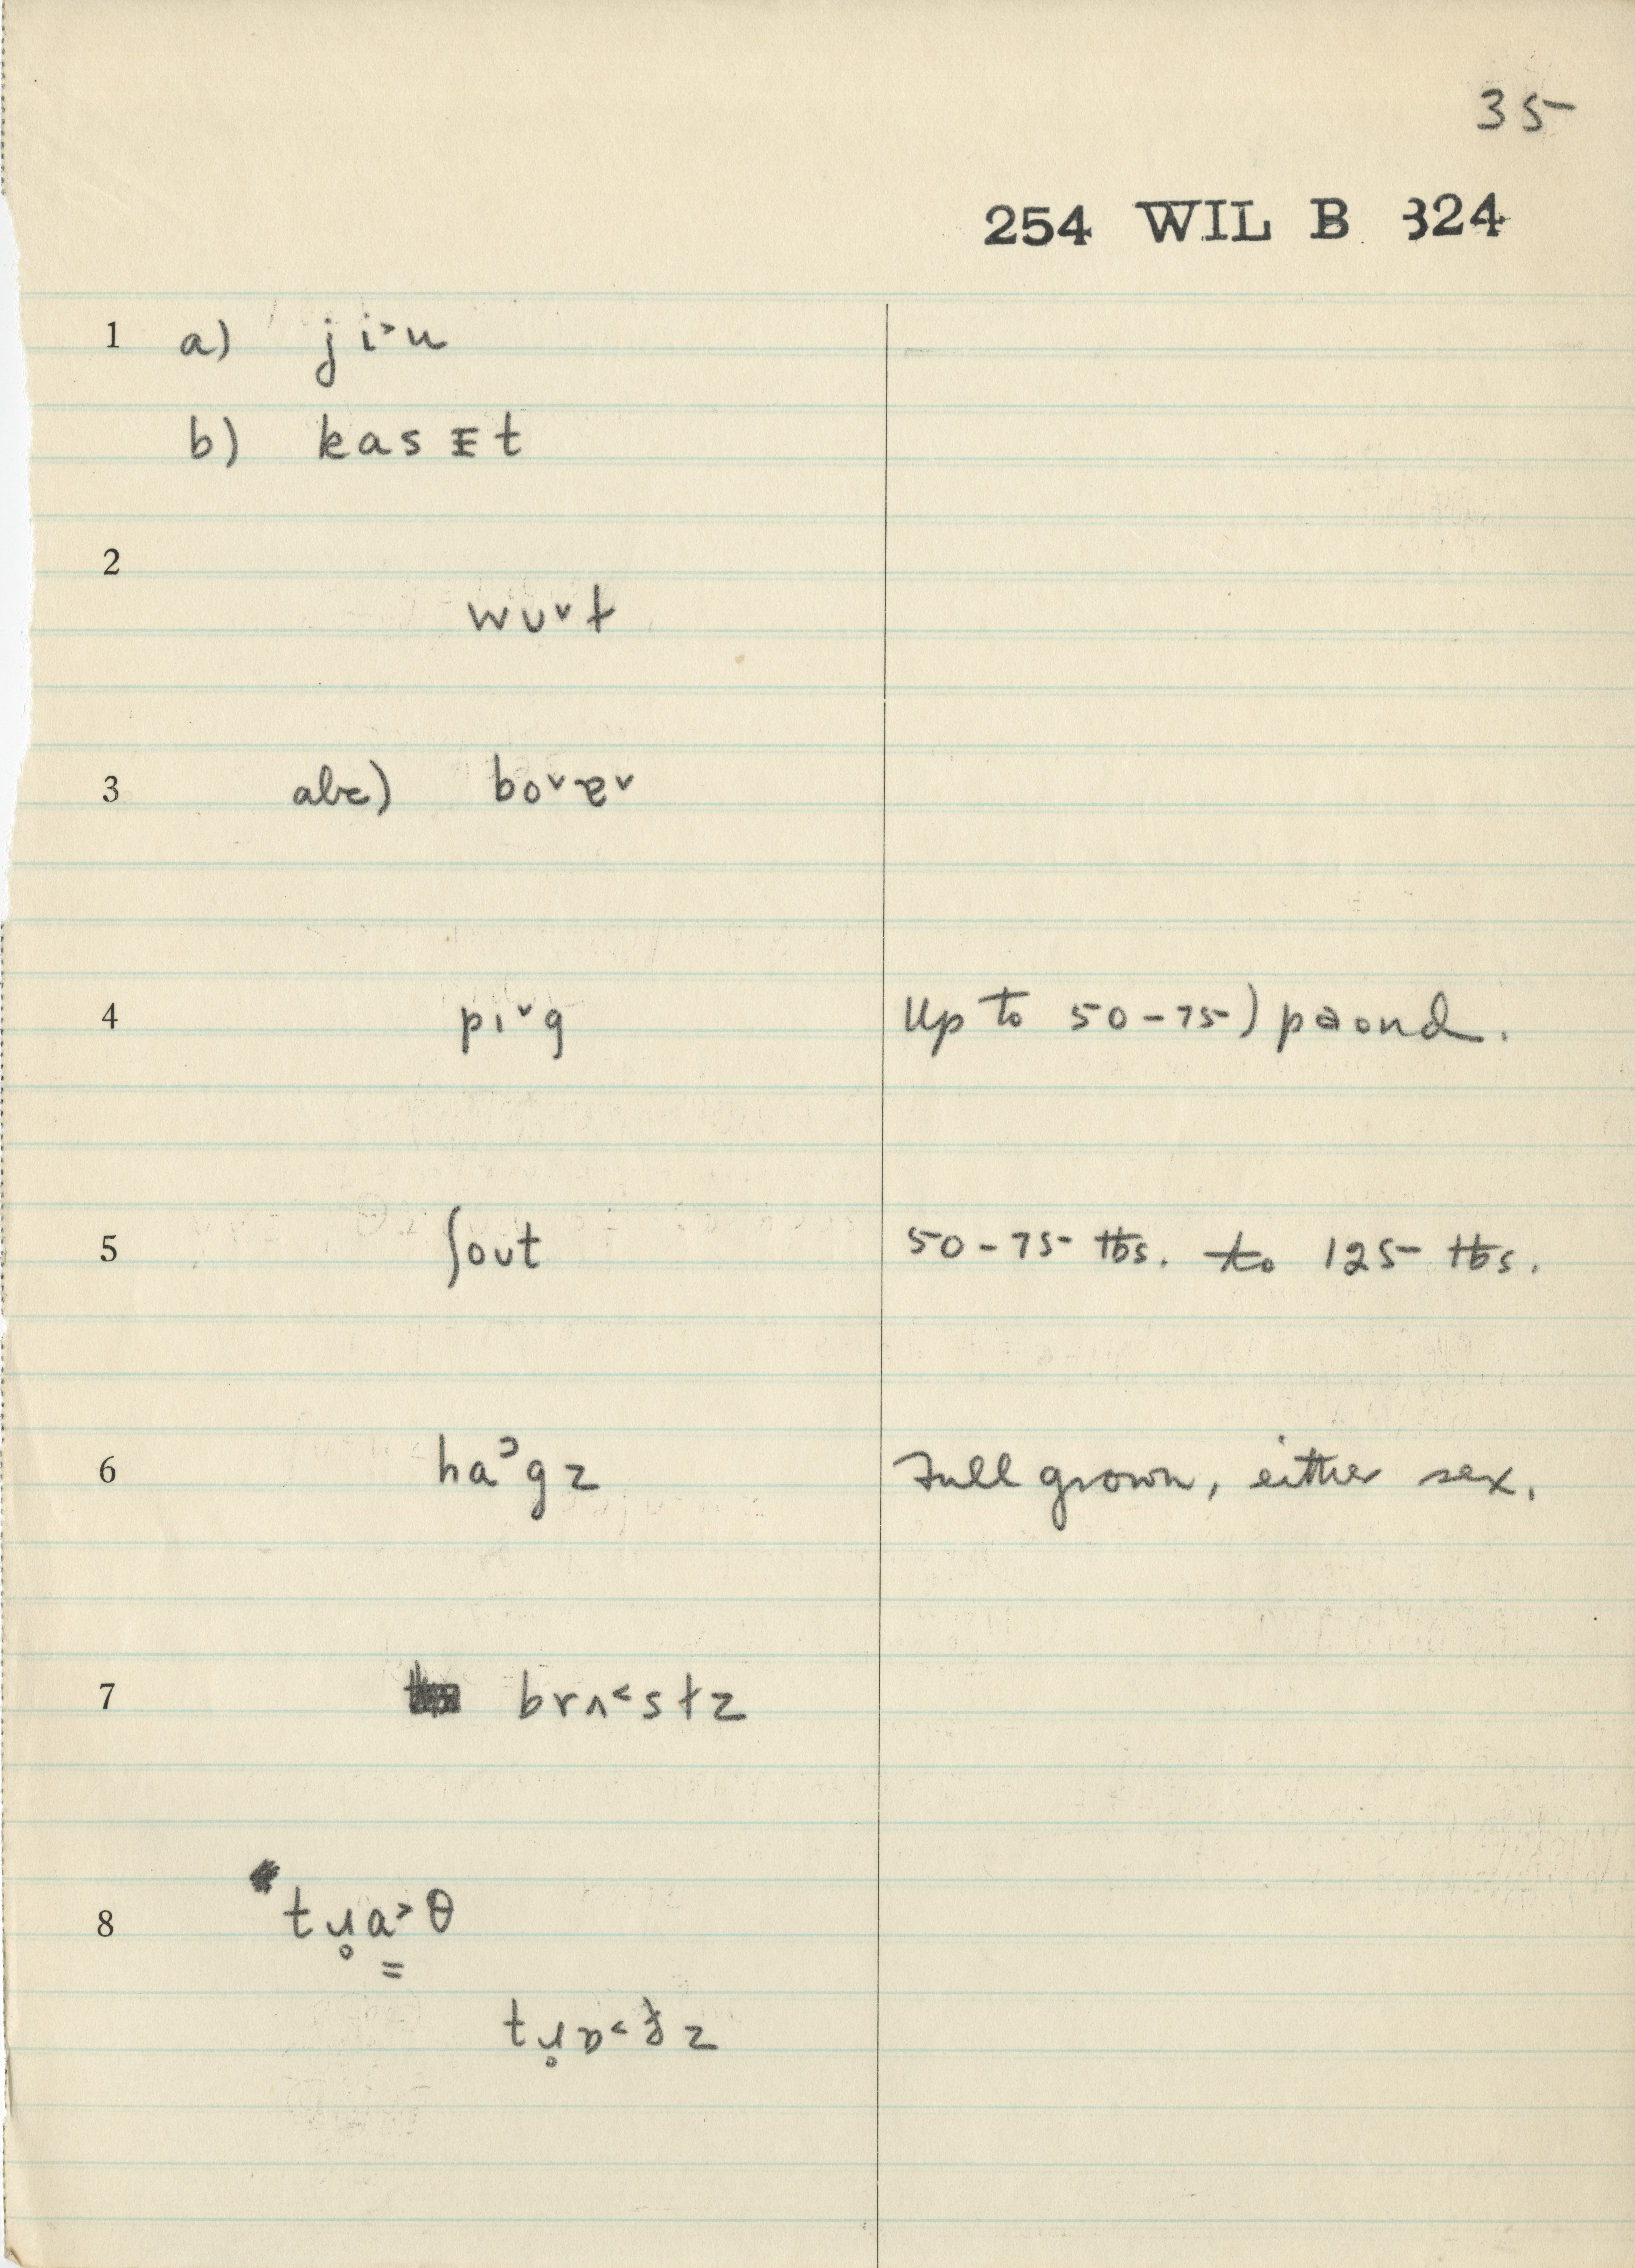 35
254 WIL B 324
1 a) ji˃u
b) kasEt
2
wʊ˅t
3 abc) bo˅ɐ˅
4 pɪ˅g Up to 50-75) paond.
5 ʃout 50-75 lbs. to 125 lbs.
6 haᵓgz Full grown, either sex.
7 brʌ˂stz
8 tɹ̥a̳˃θ
tɹ̥ɒ˂ z